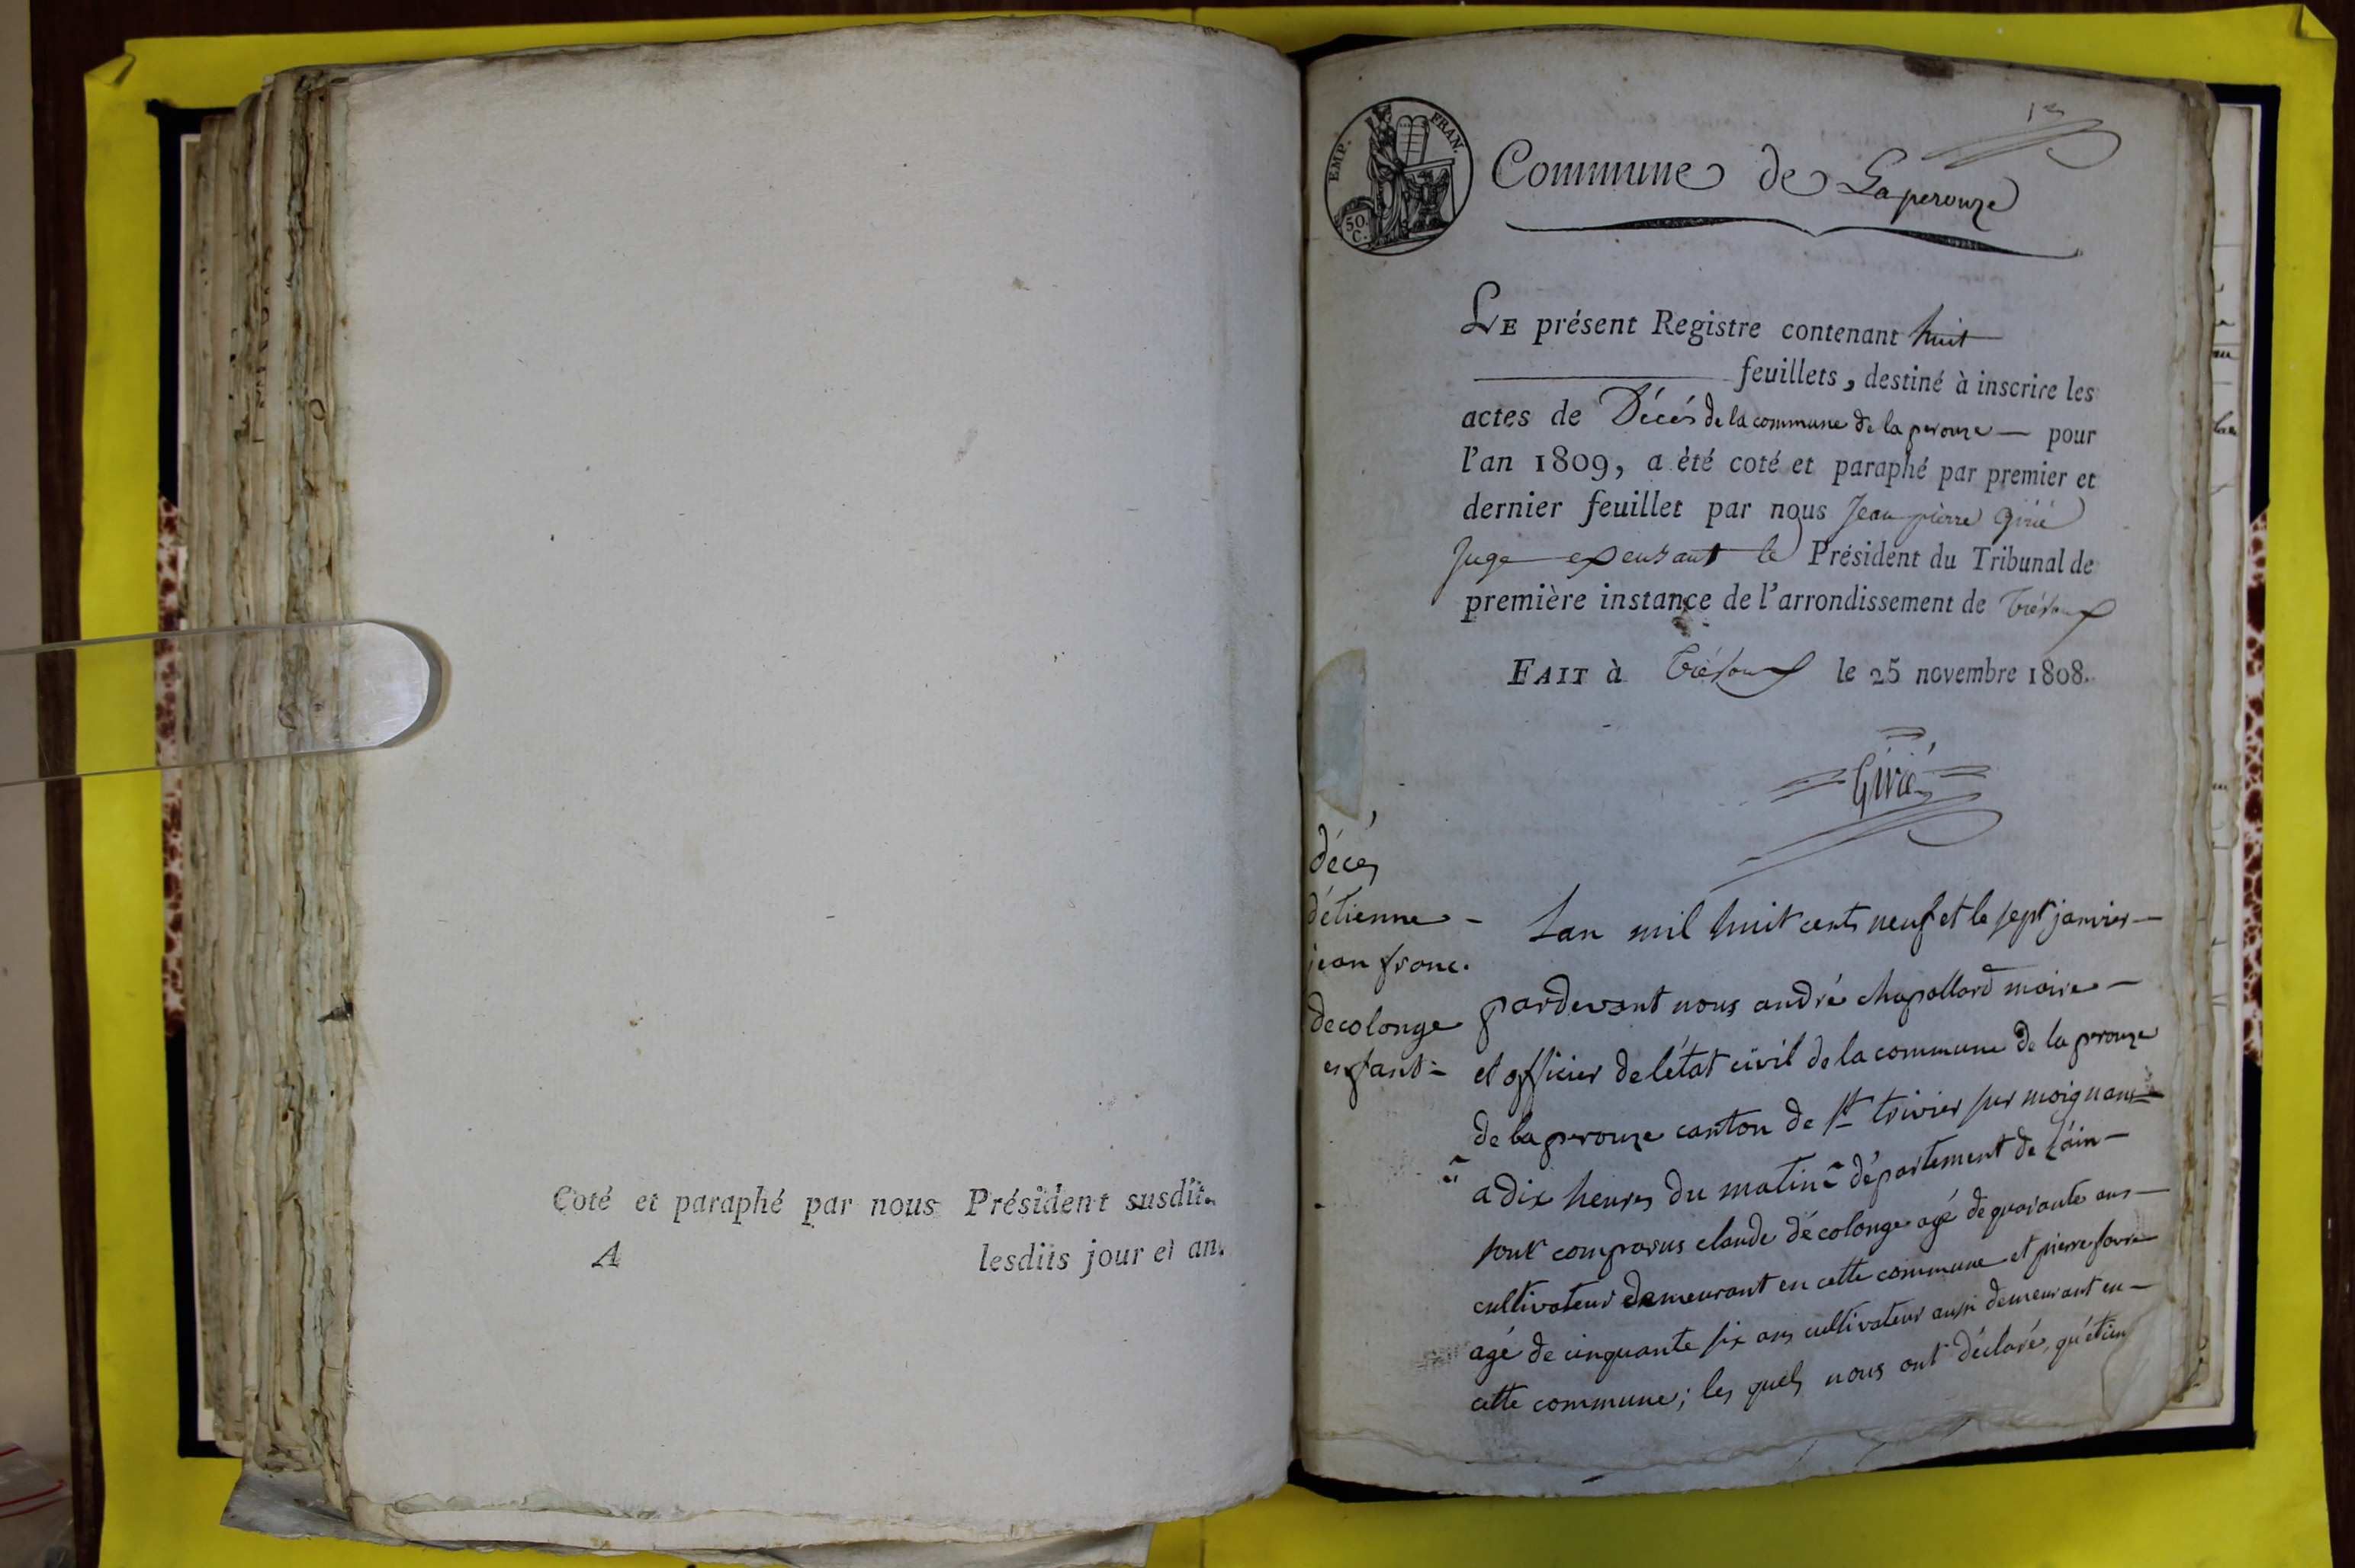 Coté et paraphé par nous Président susdit.
A lesdits jour et an.
EMP. FRAN.
50 C.
Commune de Laperouze
LE présent Registre contenant huit
feuillets, destiné à inscrire les
actes de Décés de la commune de la perouze — pour
l'an 1809, a été coté et paraphé par premier et
dernier feuillet par nous Jean pierre Girié
Juge le Président du Tribunal de
première instance de l'arrondissement de Trévoux
FAIT à Trévoux le 25 novembre 1808.
Girié
décés
d'étienne -
jean franc.
decolonge
enfant =
Lan mil huit cents neuf et le sept janvier —
pardevant nous andré chapollard maire —
et officier de létat civil de la commune de la prouze
de la prouze canton de St trivier sur moignans
a dix heures du matin département de L'ain —
sont comparus claude décolonge agé de quarante ans —
cultivateur demeurant en cette commune et pierre favre
agé de cinquante six ans cultivateur aussi demeurant en —
cette commune; les quels nous ont déclaré, qu'étien